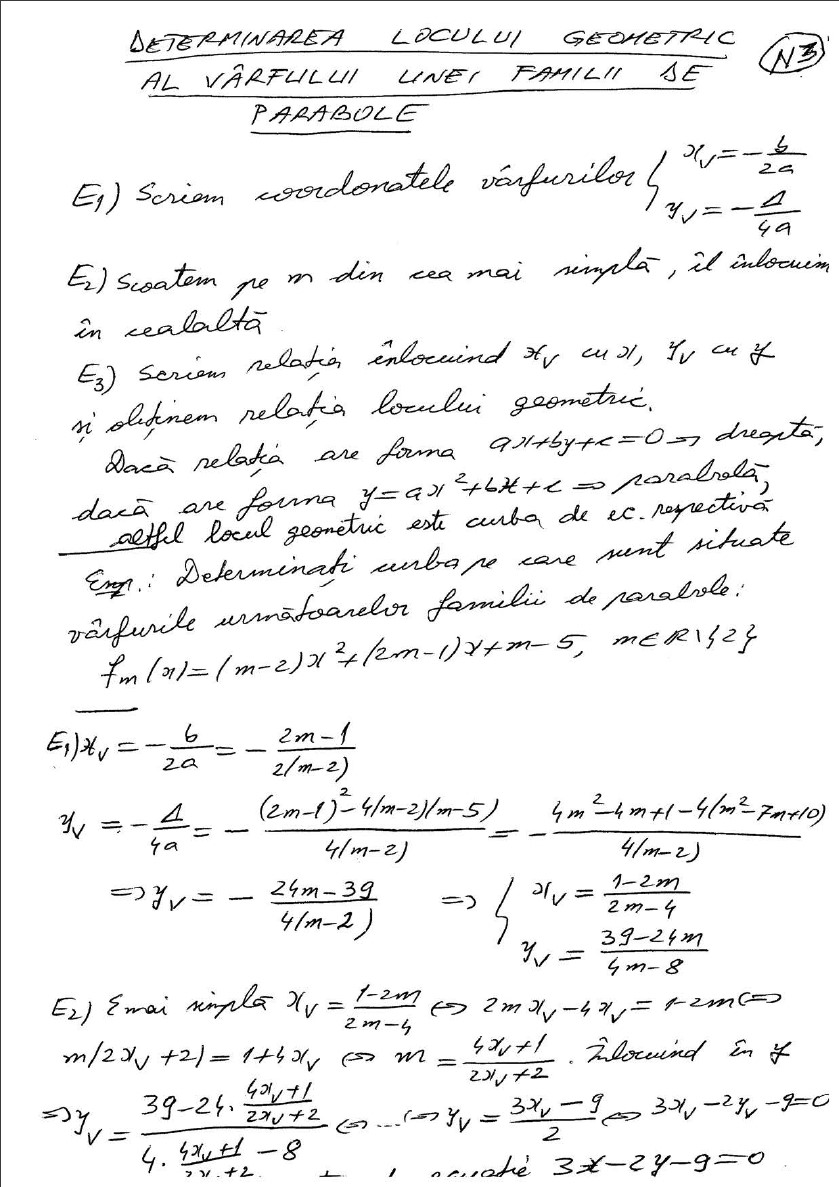 DETERMINAREA LOCULUI GEOMETRIC
AL VÂRFULUI UNEI FAMILII DE
PARABOLE
N3
E₁) Scriem coordonatele vârfurilor { x_V = -b/2a
y_V = -Δ/4a
E₂) Scoatem pe m din cea mai simplă, îl înlocuim
în cealaltă
E₃) Scriem relația înlocuind x_V cu x, y_V cu y
și obținem relația locului geometric.
Dacă relația are forma ax+by+c=0 => dreaptă,
dacă are forma y=ax²+bx+c => parabolă,
altfel locul geometric este curba de ec. respectivă
Exp.: Determinați curba pe care sunt situate
vârfurile următoarelor familii de parabole:
f_m(x)=(m-2)x²+(2m-1)x+m-5, m∈R\{2}
E₁) x_V = -b/2a = -(2m-1)/2(m-2)
y_V = -Δ/4a = -((2m-1)²-4(m-2)(m-5))/4(m-2) = -(4m²-4m+1-4(m²-7m+10))/4(m-2)
=> y_V = -(24m-39)/4(m-2) => { x_V = (1-2m)/(2m-4)
y_V = (39-24m)/(4m-8)
E₂) E mai simplă x_V = (1-2m)/(2m-4) <=> 2mx_V-4x_V=1-2m <=>
m(2x_V+2)=1+4x_V <=> m = (4x_V+1)/(2x_V+2). Înlocuind în y
=> y_V = (39-24·(4x_V+1)/(2x_V+2))/(4·(4x_V+1)/(2x_V+2)-8) <=>...<=> y_V = (3x_V-9)/2 <=> 3x_V-2y_V-9=0
3x-2y-9=0